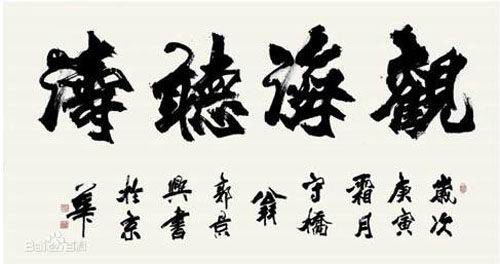 觀海聽濤
歲次
庚寅
霜月
守橋
翁
郭景
興書
於京
華
Baidu百科